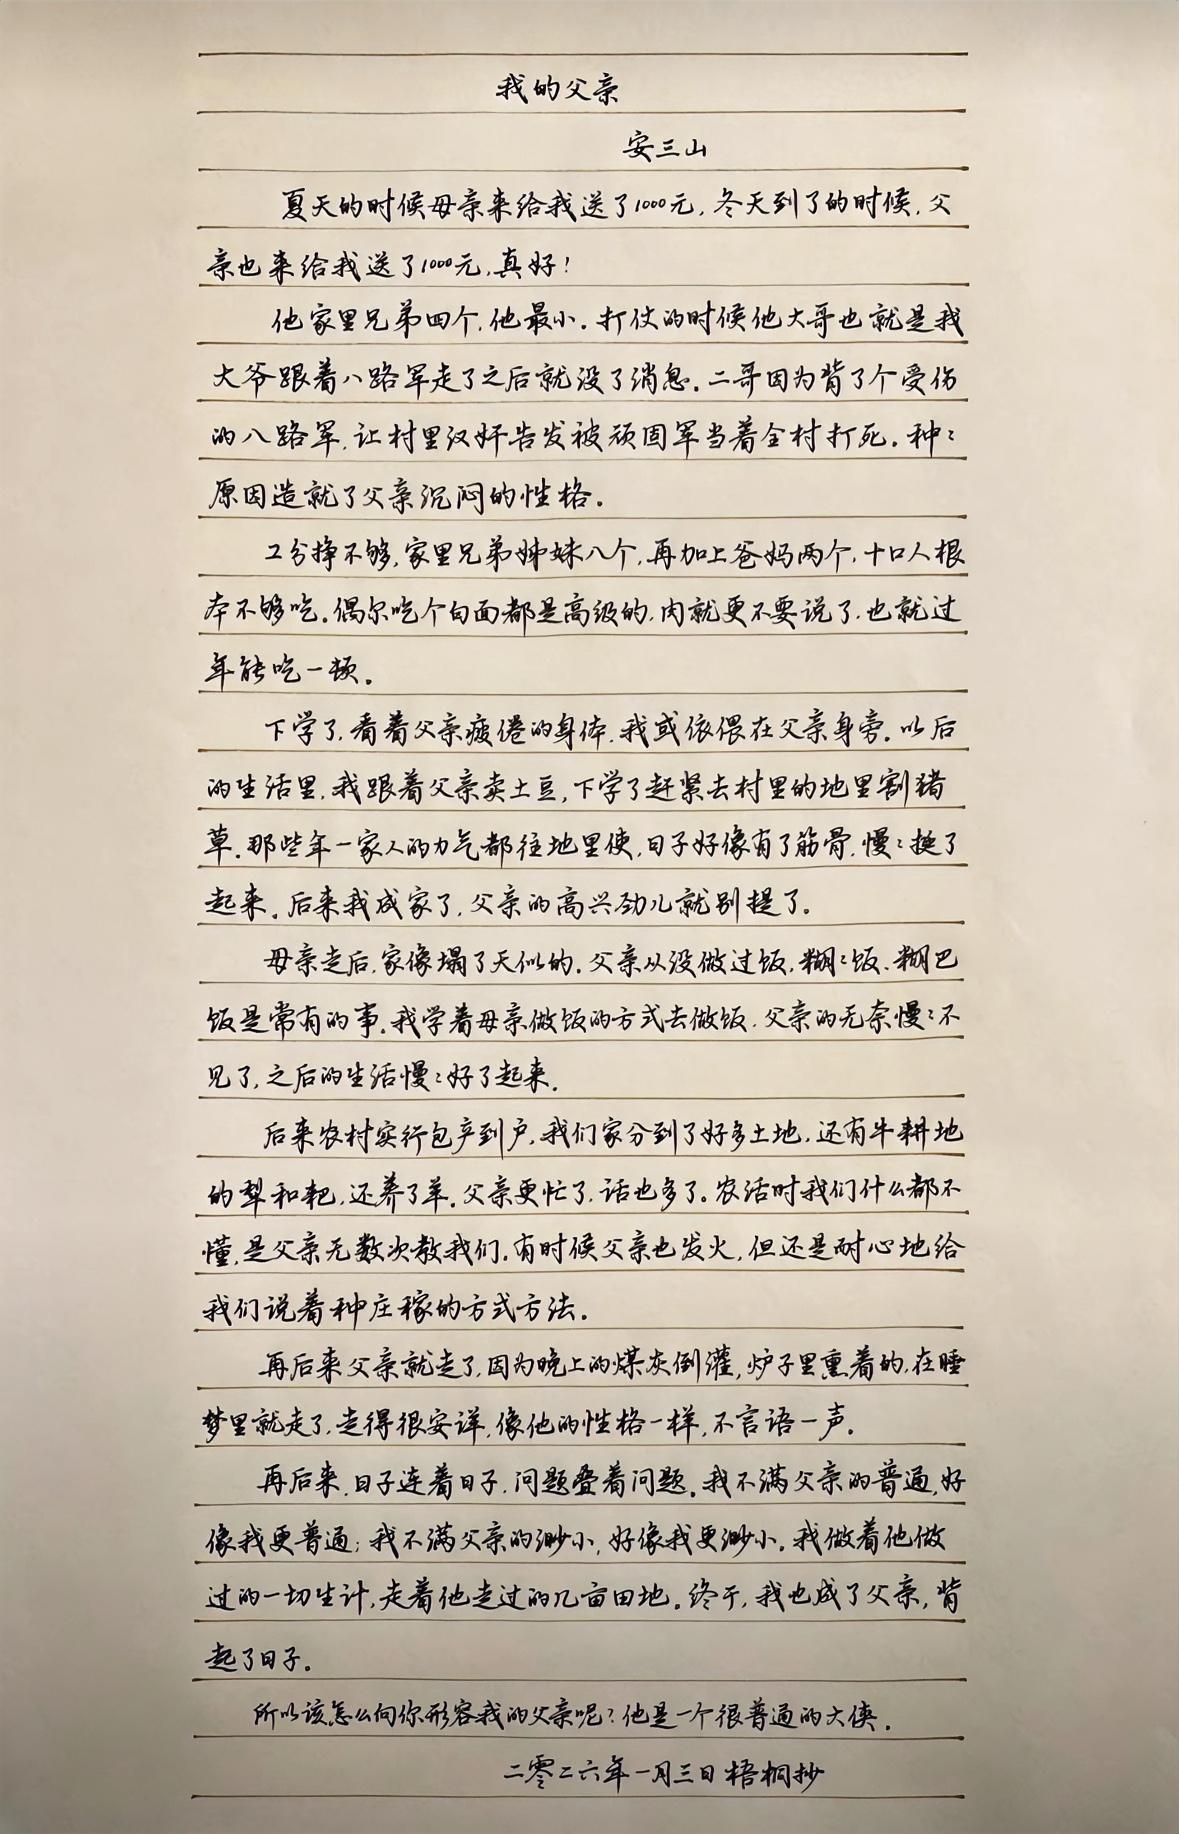 我的父亲
安三山
夏天的时候母亲来给我送了1000元,冬天到了的时候,父
亲也来给我送了1000元,真好!
他家里兄弟四个,他最小。打仗的时候他大哥也就是我
大爷跟着八路军走了之后就没了消息。二哥因为背了个受伤
的八路军,让村里汉奸告发被顽固军当着全村打死。种々
原因造就了父亲沉闷的性格。
工分挣不够,家里兄弟姊妹八个,再加上爸妈两个,十口人根
本不够吃。偶尔吃个白面都是高级的,肉就更不要说了,也就过
年能吃一顿。
下学了,看着父亲疲倦的身体,我或依偎在父亲身旁。以后
的生活里,我跟着父亲卖土豆,下学了赶紧去村里的地里割猪
草。那些年一家人的力气都往地里使,日子好像有了筋骨,慢々挺了
起来。后来我成家了,父亲的高兴劲儿就别提了。
母亲走后,家像塌了天似的。父亲从没做过饭,糊々饭、糊巴
饭是常有的事。我学着母亲做饭的方式去做饭,父亲的无奈慢々不
见了,之后的生活慢々好了起来。
后来农村实行包产到户,我们家分到了好多土地,还有牛耕地
的犁和耙,还养了羊。父亲更忙了,话也多了。农活时我们什么都不
懂,是父亲无数次教我们,有时候父亲也发火,但还是耐心地给
我们说着种庄稼的方式方法。
再后来父亲就走了,因为晚上的煤灰倒灌,炉子里熏着的,在睡
梦里就走了,走得很安详,像他的性格一样,不言语一声。
再后来,日子连着日子,问题叠着问题。我不满父亲的普通,好
像我更普通;我不满父亲的渺小,好像我更渺小。我做着他做
过的一切生计,走着他走过的几亩田地。终于,我也成了父亲,背
起了日子。
所以该怎么向你形容我的父亲呢?他是一个很普通的大侠。
二零二六年一月三日梧桐抄